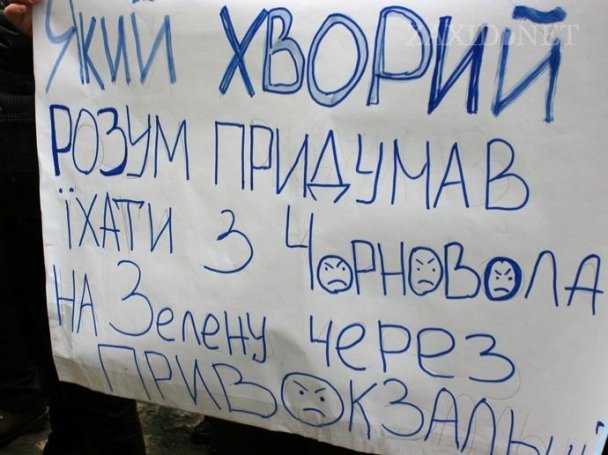 ZAXID.NET
ЯКИЙ ХВОРИЙ
РОЗУМ ПРИДУМАВ
ЇХАТИ З ЧОРНОВОЛА
НА ЗЕЛЕНУ ЧЕРЕЗ